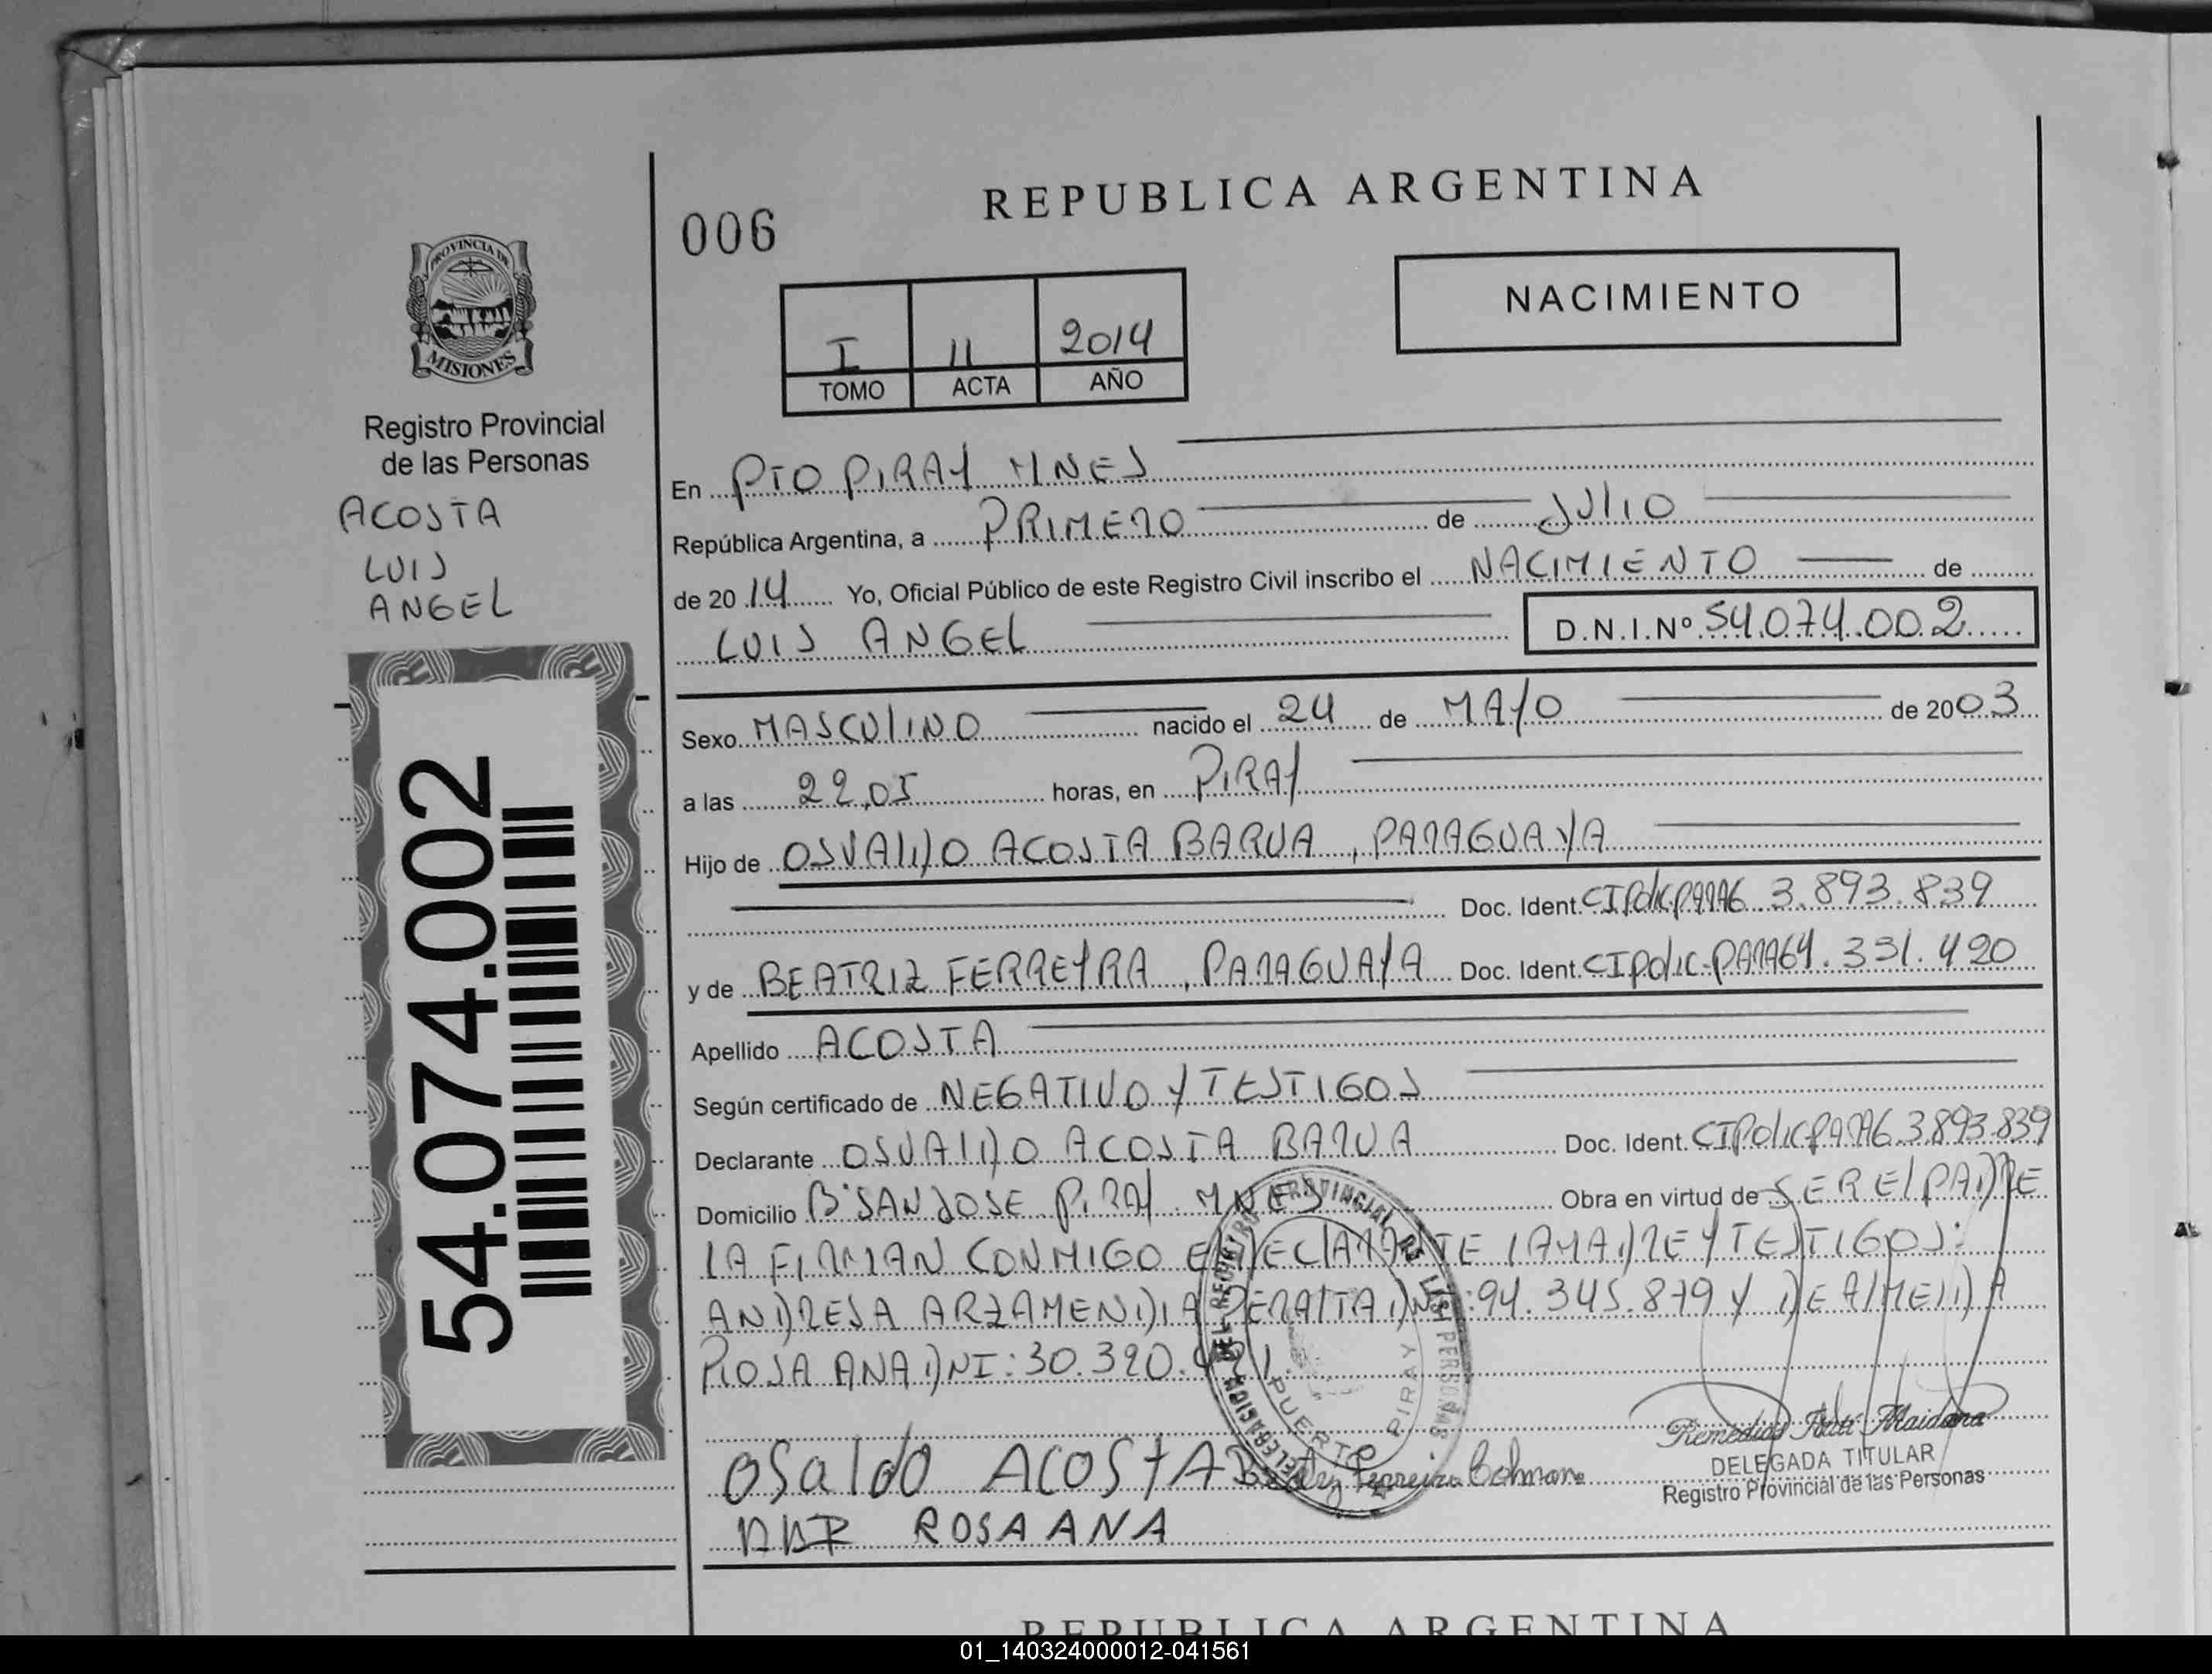 REPUBLICA ARGENTINA
006
NACIMIENTO
I 11 2014
TOMO ACTA AÑO
PROVINCIA DE
MISIONES
Registro Provincial
de las Personas
ACOSTA
LUIS
ANGEL
54.074.002
En PTO PIRAY MNES
República Argentina, a PRIMERO de JULIO
de 2014 Yo, Oficial Público de este Registro Civil inscribo el NACIMIENTO de
LUIS ANGEL D.N.I.Nº 54.074.002
Sexo MASCULINO nacido el 24 de MAYO de 2003
a las 22,05 horas, en PIRAY
Hijo de OSVALDO ACOSTA BARUA, PARAGUAYA
Doc. Ident. CIPolic.PARAG 3.893.839
y de BEATRIZ FERREYRA, PARAGUAYA Doc. Ident. CIPolic-PARAG 4.331.420
Apellido ACOSTA
Según certificado de NEGATIVO Y TESTIGOS
Declarante OSVALDO ACOSTA BARUA Doc. Ident. CIPolicPARAG.3.893.839
Domicilio Bº SAN JOSE PIRAY MNES Obra en virtud de SER El PADRE
LA FIRMAN CONMIGO El DEClARANTE LA MADRE Y TESTIGOS:
ANDRESA ARZAMENDIA PERALTA DNI:94.345.879 Y DE ALMEIDA
ROSA ANA DNI:30.390.
DELEGACION DEL REGISTRO PROVINCIAL DE LAS PERSONAS
PUERTO PIRAY
OSaldo ACOStA Ferreira Colman
ROSA ANA
Remedios Maidana
DELEGADA TITULAR
Registro Provincial de las Personas
REPUBLICA ARGENTINA
01_140324000012-041561